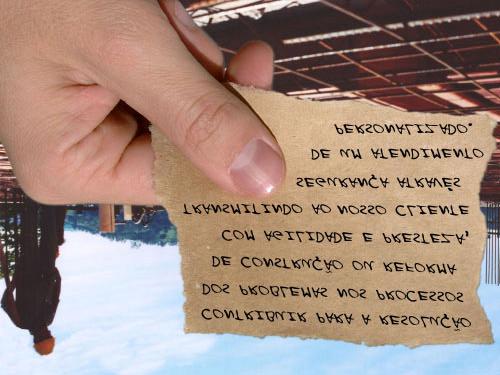 CONTRIBUIR PARA A RESOLUÇÃO
DOS PROBLEMAS NOS PROCESSOS
DE CONSTRUÇÃO OU REFORMA
COM AGILIDADE E PRESTEZA,
TRANSMITINDO AO NOSSO CLIENTE
SEGURANÇA ATRAVÉS
DE UM ATENDIMENTO
PERSONALIZADO.